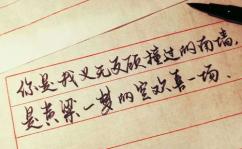 你是我义无反顾撞过的南墙,
是黄粱一梦的空欢喜一场.